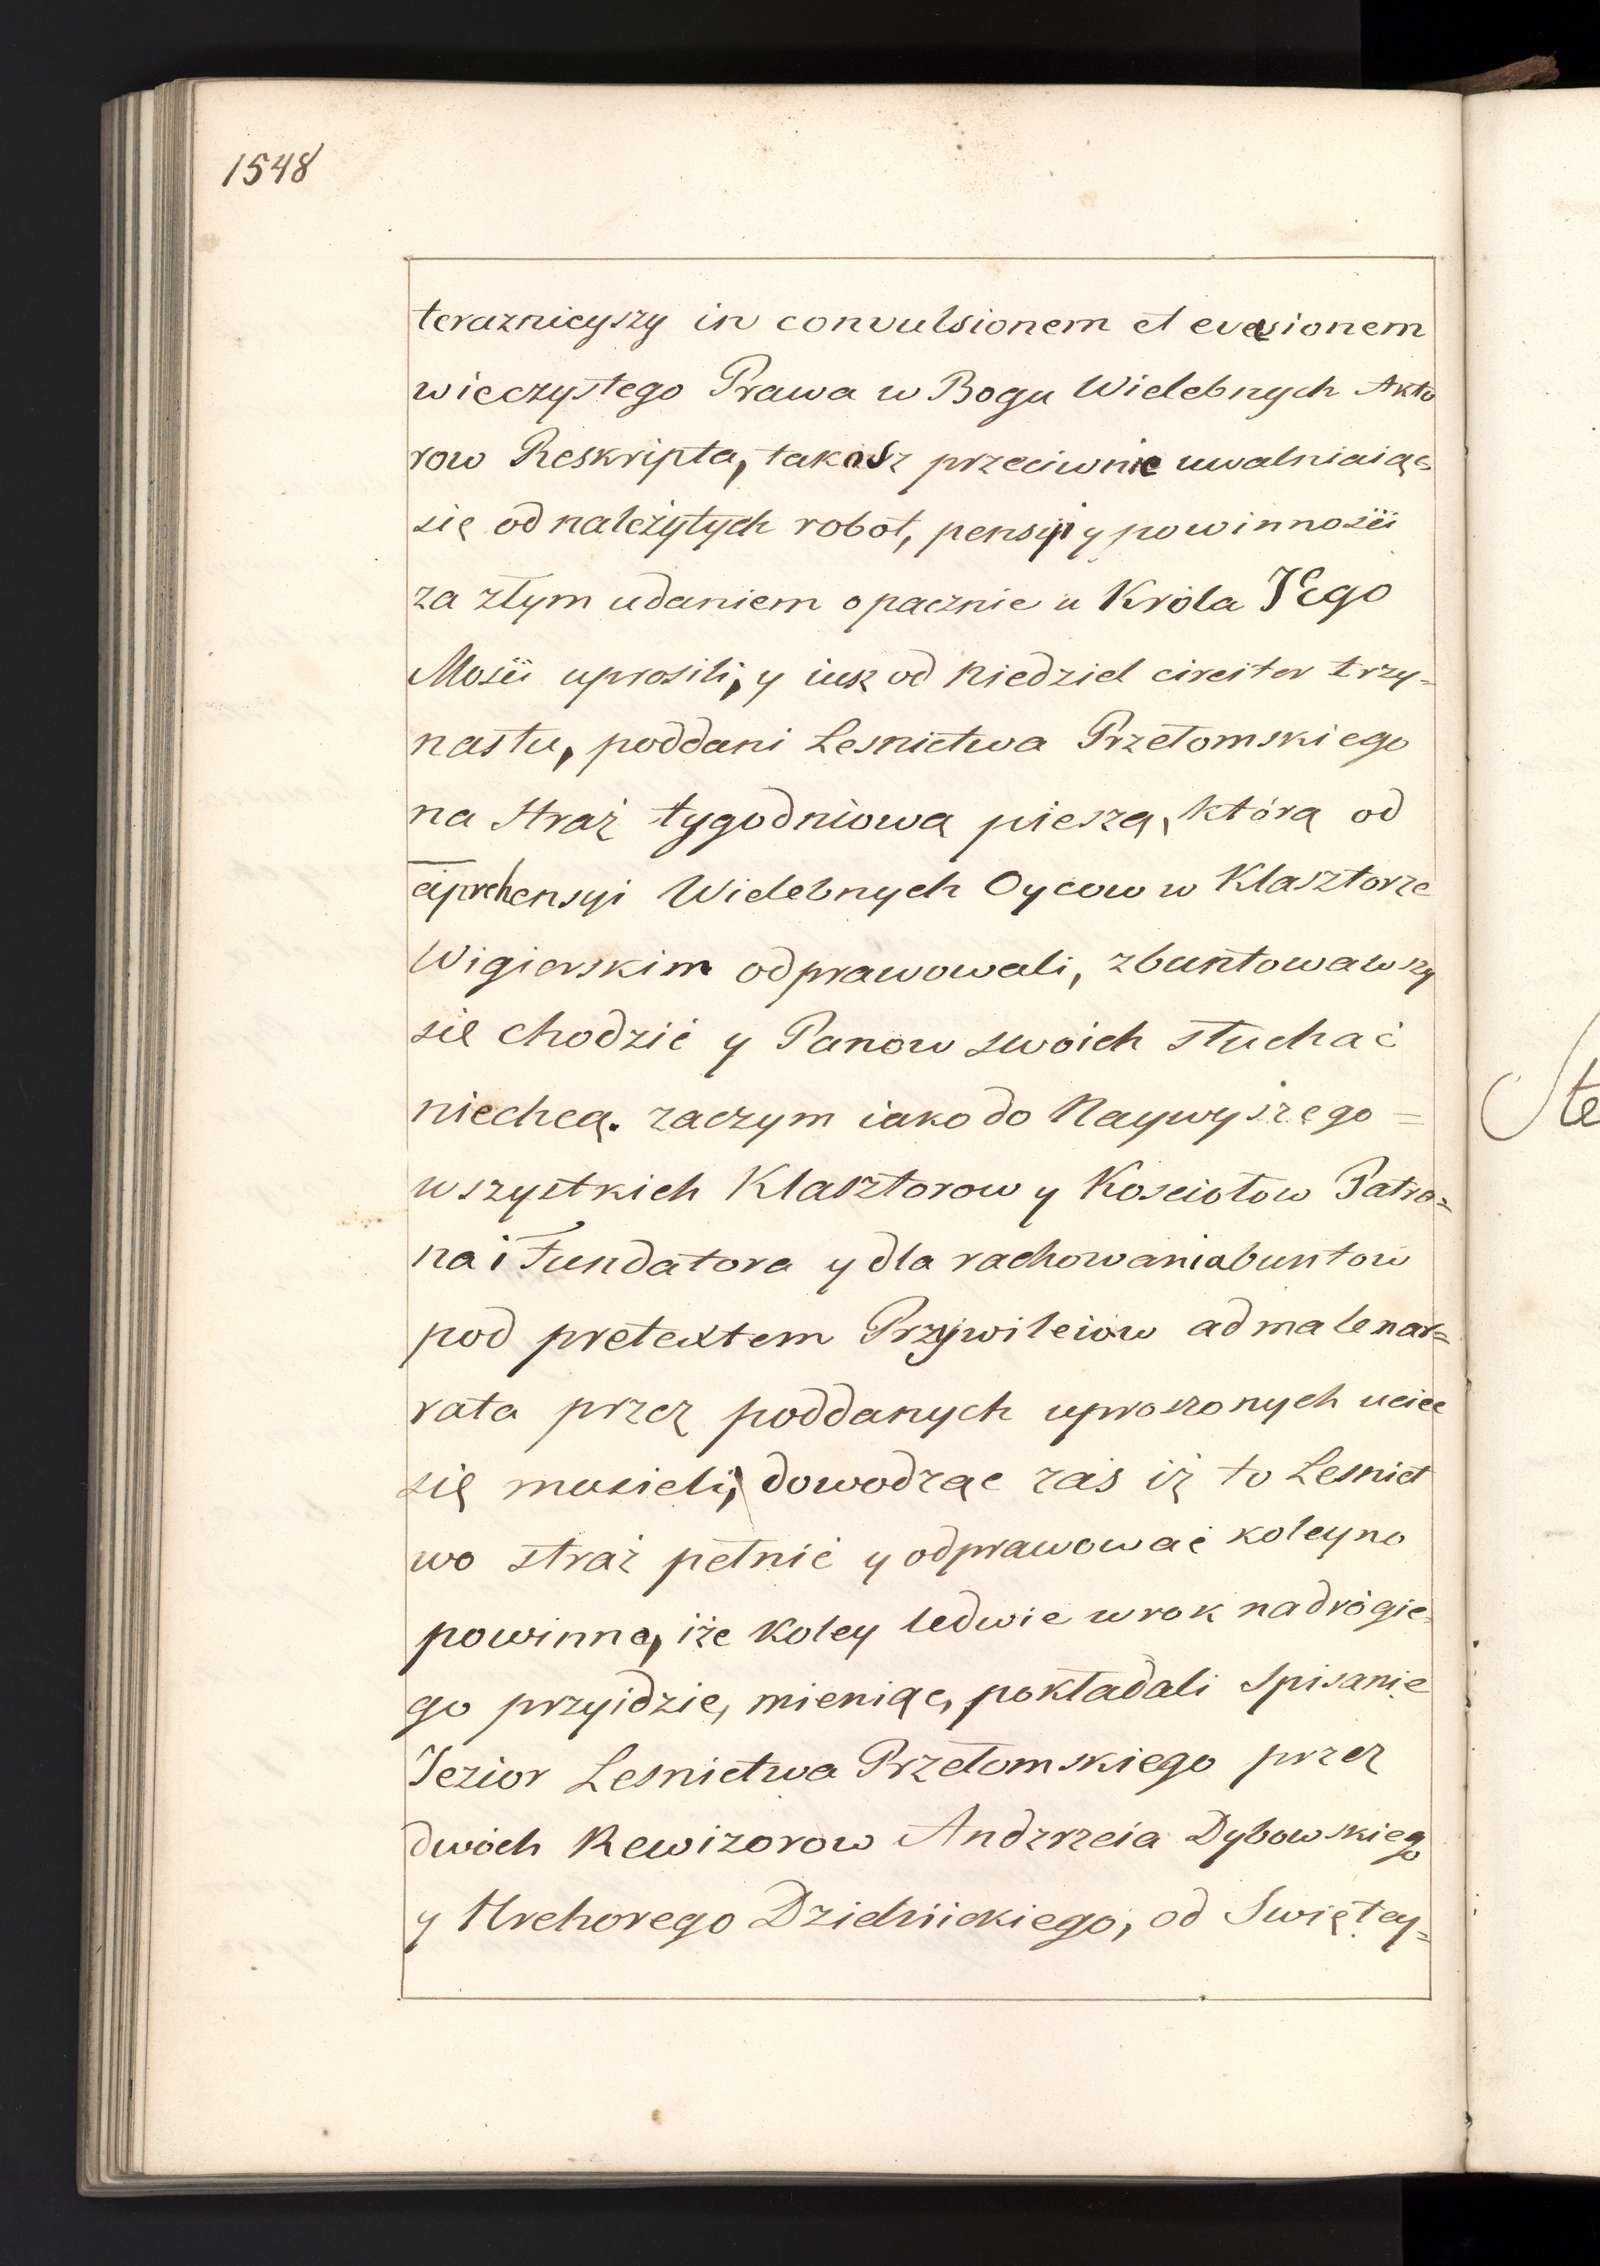 1548
teraznieyszy in convulsionem et evasionem
wieczystego Prawa w Bogu Wielebnych Akto
row Reskripta, takosz przeciwnie uwalniaiąc
się od należytych robot, pensyi y powinnosci
za złym udaniem opacznie u Króla JEgo
Mosci uprosili, y iusz od Niedziel circiter trzy=
nastu, poddani Lesnictwa Przełomskiego
na straż tygodniową pieszą, którą od
apprehensyi Wielebnych Oycow w Klasztorze
Wigierskim odprawowali, zbuntowawszy
sie chodzić y Panow swoich słuchać
niechcą. zaczym iako do Naywyższego =
wszystkich Klasztorow y Kosciołow Patro=
na i Fundatora y dla rachowania buntow
pod pretextem Przywileiow ad male nar=
rata przez poddanych uproszonych uciec
się musieli, dowodząc zaś iż to Lesnict
wo straż pełnić y odprawować koleyno
powinno, iże Koley ledwie w rok na drógie
go przyidzie, mieniąc, pokładali Spisanie
Jezior Lesnictwa Przełomskiego przez
dwóch Rewizorow Andrzeia Dybowskiego
y Hrehorego Dzielnickiego, od Swiętey=
Ste